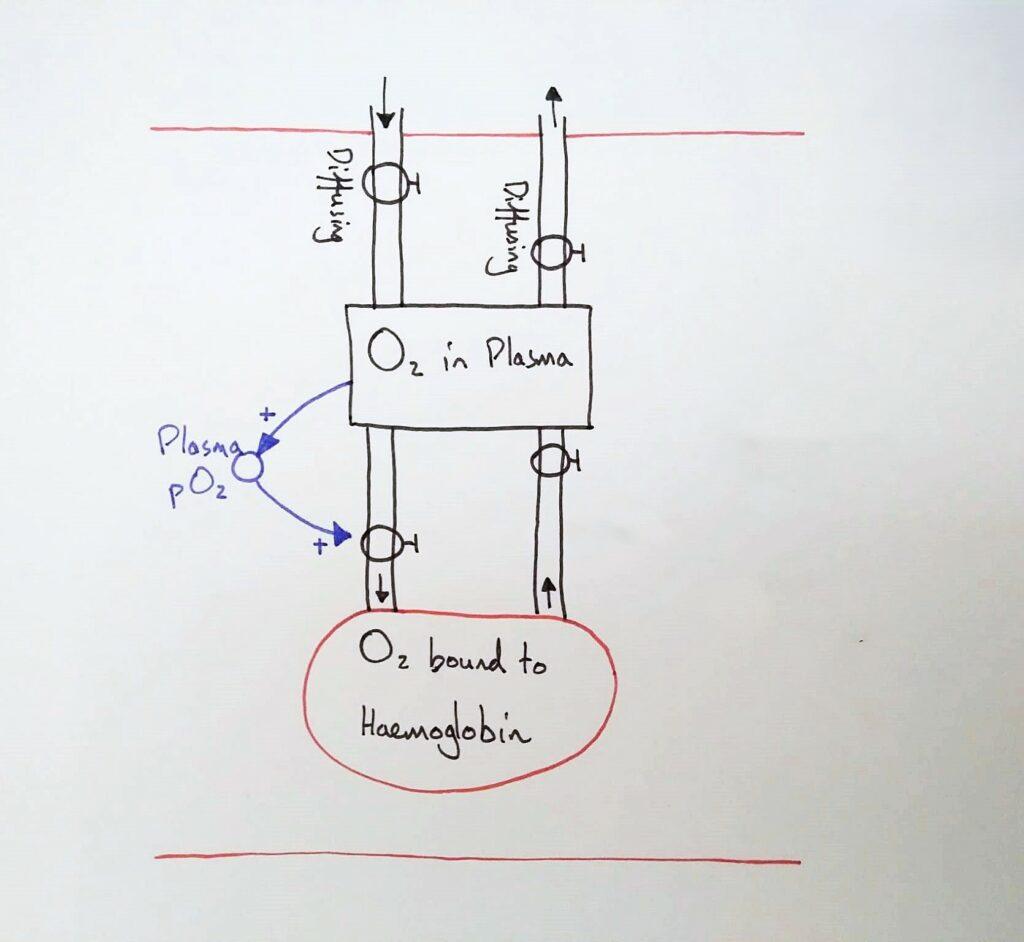 Diffusing
Diffusing
O₂ in Plasma
+
Plasma
pO₂
+
O₂ bound to
Haemoglobin